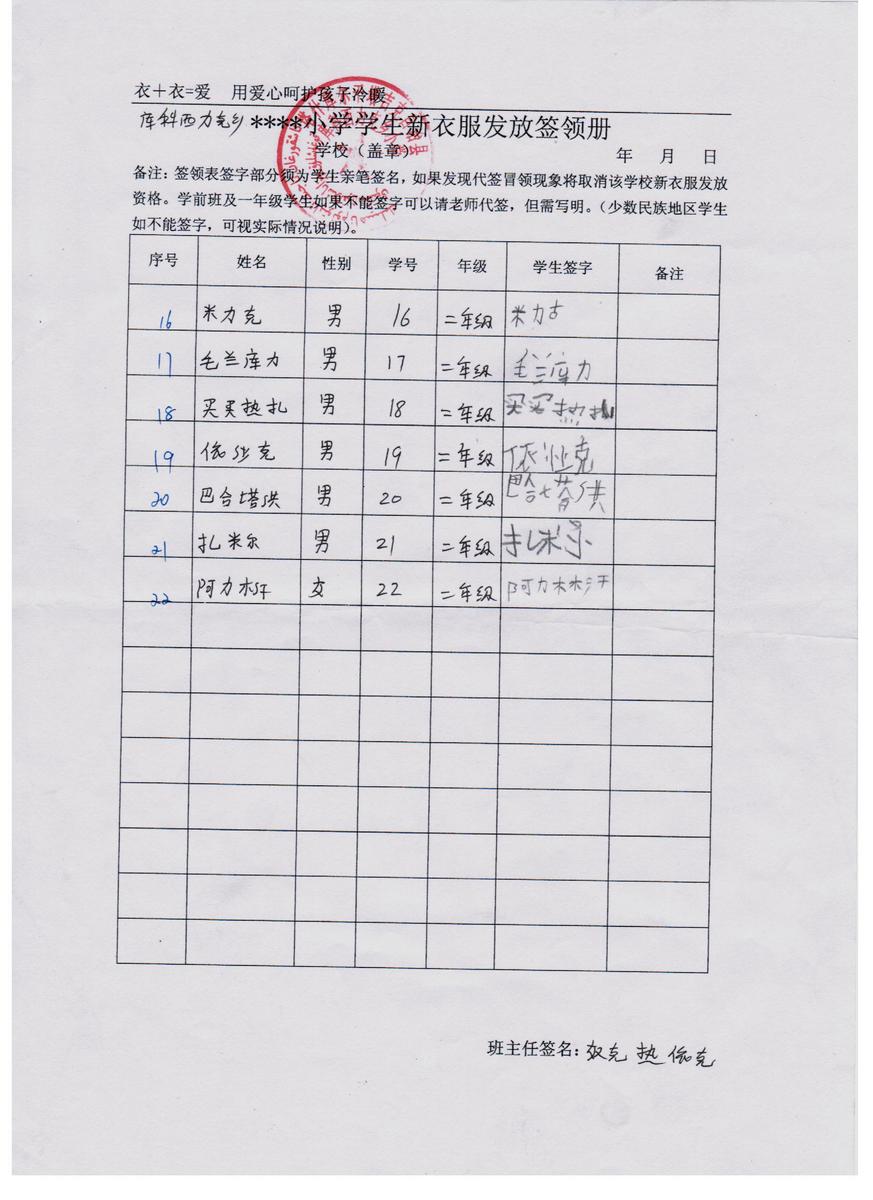 衣＋衣=爱 用爱心呵护孩子冷暖
库科西力克乡 ****小学学生新衣服发放签领册
学校（盖章） 年 月 日
备注：签领表签字部分须为学生亲笔签名，如果发现代签冒领现象将取消该学校新衣服发放
资格。学前班及一年级学生如果不能签字可以请老师代签，但需写明。（少数民族地区学生
如不能签字，可视实际情况说明）。
序号 姓名 性别 学号 年级 学生签字 备注
16 米力克 男 16 二年级 米力古
17 毛兰库力 男 17 二年级 毛兰库力
18 买买热扎 男 18 二年级 买买热扎
19 依 克 男 19 二年级 依 克
20 巴合塔洪 男 20 二年级 巴合塔洪
21 扎米尔 男 21 二年级 扎米尔
22 阿力木汗 女 22 二年级 阿力木木汗
班主任签名：奴克热依克